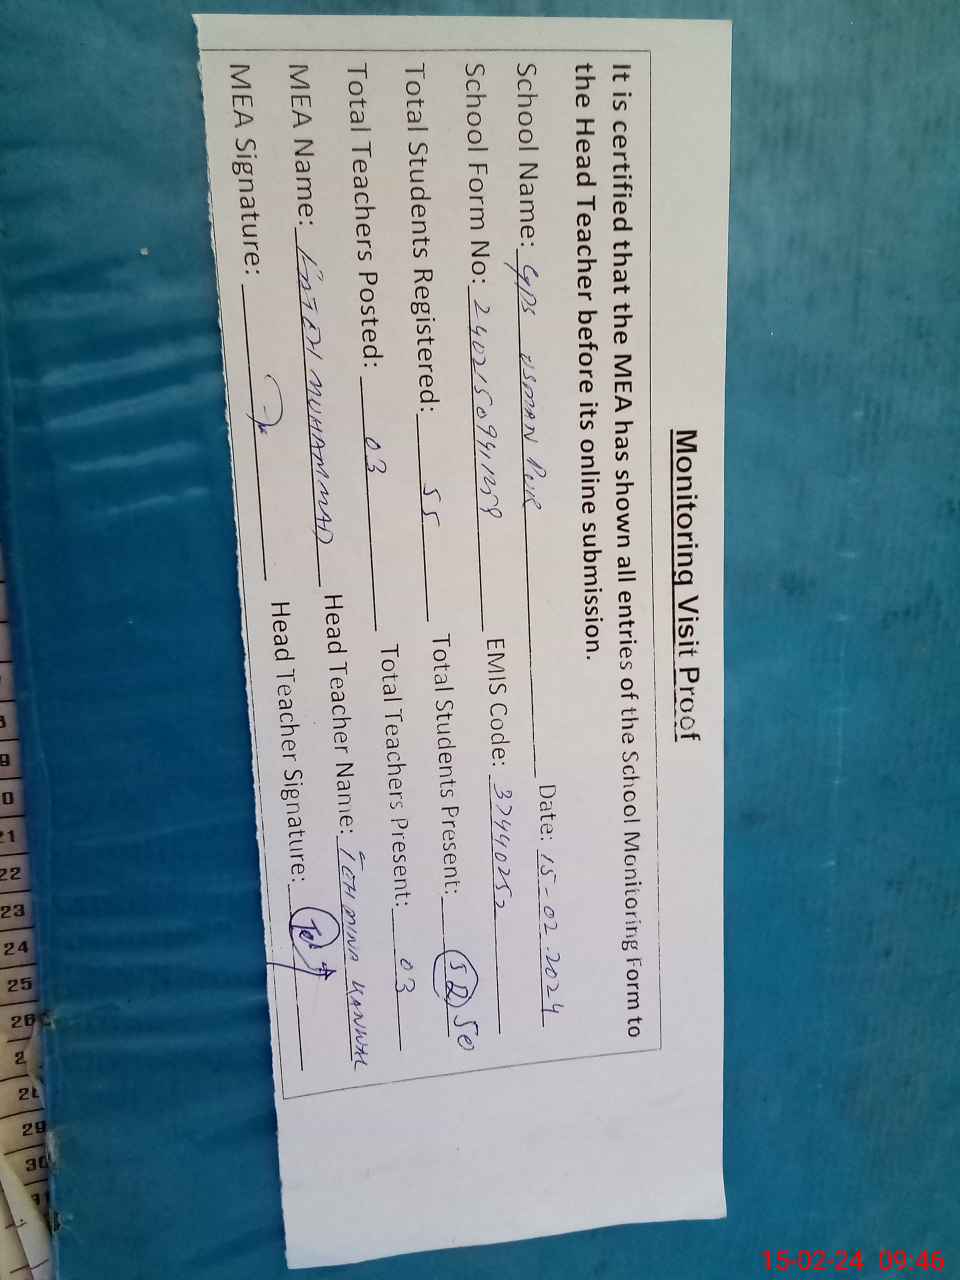 Monitoring Visit Proof
It is certified that the MEA has shown all entries of the School Monitoring Form to
the Head Teacher before its online submission.
School Name: GPS USMAN PUR Date: 15-02-2024
School Form No: EMIS Code: 37440252
Total Students Registered: 55 Total Students Present: 52 50
Total Teachers Posted: 03 Total Teachers Present: 03
MEA Name: MUHAMMAD Head Teacher Name: TEHMINA KANWAL
MEA Signature: Head Teacher Signature:
21
22
23
24
25
26
29
30
31
15-02-24 09:46